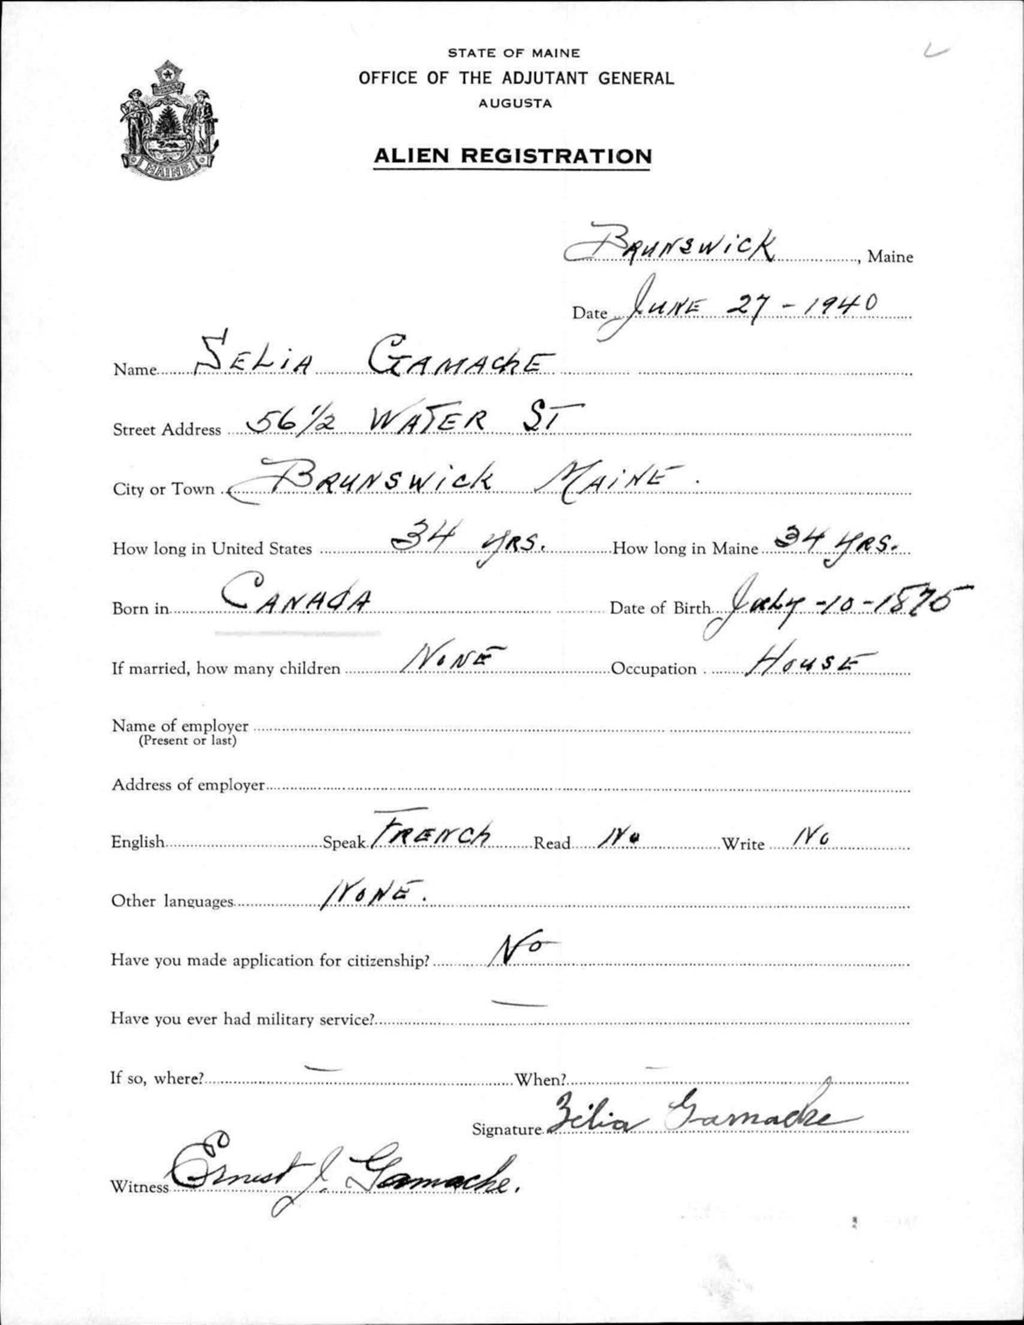 STATE OF MAINE
OFFICE OF THE ADJUTANT GENERAL
AUGUSTA
ALIEN REGISTRATION
MAINE
Brunswick, Maine
Date June 27 - 1940
Name Selia Gamache
Street Address 56 1/2 Water St
City or Town Brunswick Maine.
How long in United States 34 yrs. How long in Maine 34 yrs.
Born in Canada Date of Birth July - 10 - 1875
If married, how many children None Occupation House
Name of employer
(Present or last)
Address of employer
English Speak French Read No Write No
Other languages None.
Have you made application for citizenship? No
Have you ever had military service? —
If so, where? — When? —
Signature Zilia Gamache
Witness Ernest J. Gamache.